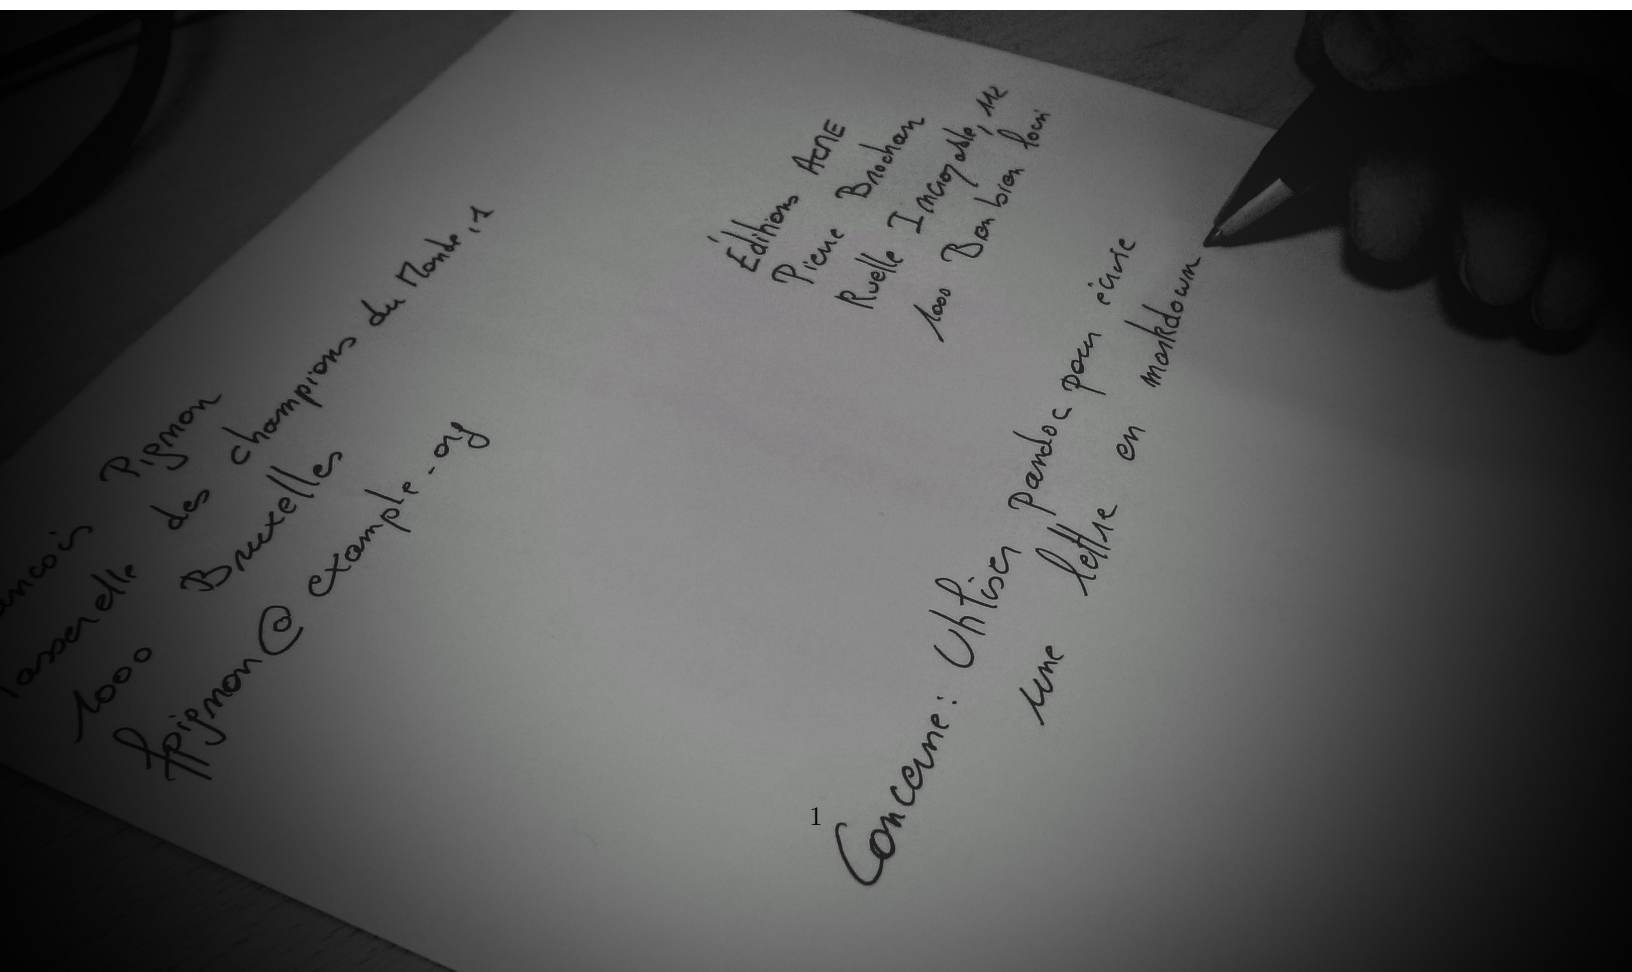 ancois Pignon
asserelle des champions du Monde, 1
1000 Bruxelles
fpignon@example.org
Éditions ACME
Pierre Brochan
Ruelle Incroyable,
1000 Bien loin
Concerne: Utiliser pandoc pour écrire
une lettre en markdown
1